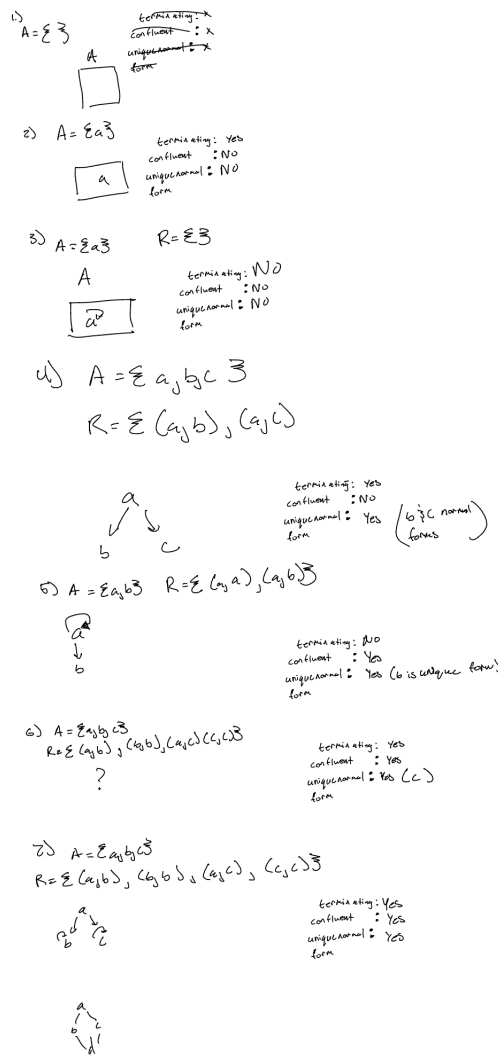 1.) A = { }
terminating: x
confluent : x
unique normal : x
form
A
2) A = {a}
terminating: Yes
confluent : No
unique normal : No
form
a
3) A = {a} R = { }
A
terminating: No
confluent : No
unique normal : No
form
a
4) A = { a, b, c }
R = { (a, b), (a, c)
a
b c
terminating: Yes
confluent : No
unique normal : Yes (b & c normal
form forms)
5) A = {a, b} R = { (a, a), (a, b) }
a
b
terminating: No
confluent : Yes
unique normal : Yes (b is unique form)
form
6) A = {a, b, c}
R = { (a, b), (b, b), (a, c) (c, c) }
?
terminating: Yes
confluent : Yes
unique normal : Yes (c)
form
7) A = {a, b, c}
R = { (a, b), (b, b), (a, c), (c, c) }
a
b c
terminating: Yes
confluent : Yes
unique normal : Yes
form
a
b c
d